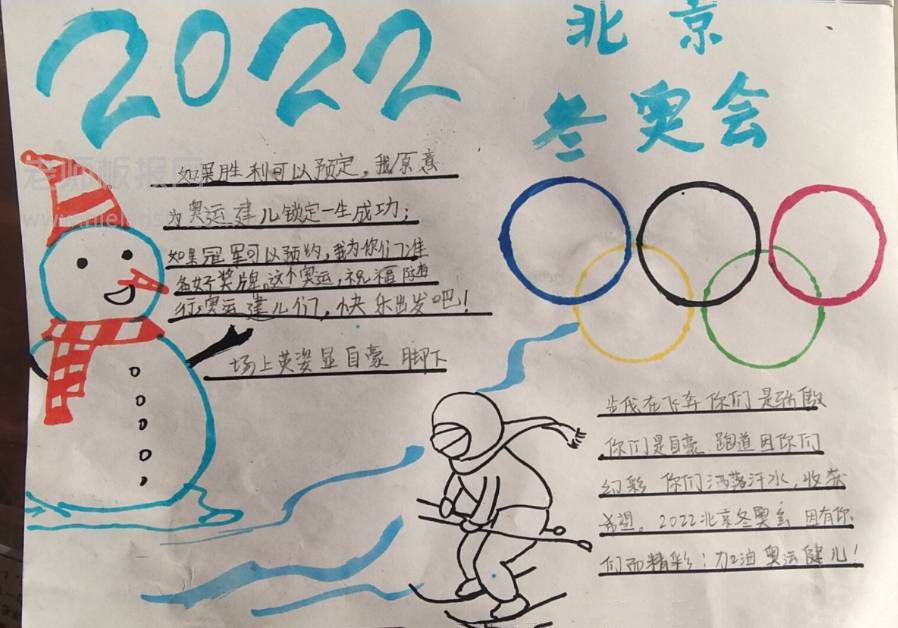 2022
北京
冬奥会
如果胜利可以预定，我原意
为奥运建儿锁定一生成功；
如果冠军可以预约，我为你们准
备好奖牌，这个奥运，祝福随
行，奥运建儿们，快乐出发吧！
场上英姿显自豪 脚下
步伐在飞奔 你们是骄傲
你们是自豪 跑道因你们
幻彩 你们洒落汗水，收获
希望。2022北京冬奥会 因有你
们而精彩！加油奥运健儿！
老师板报网